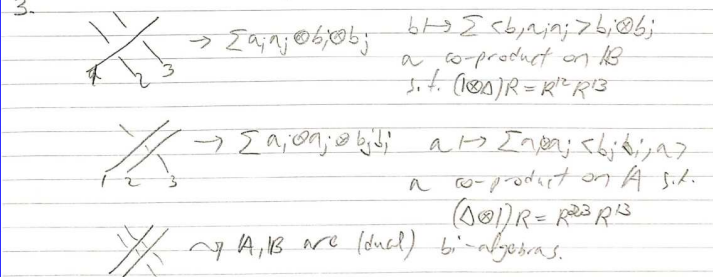 3.
→ Σ aᵢaⱼ⊗bᵢ⊗bⱼ b ↦ Σ <b,aᵢaⱼ>bᵢ⊗bⱼ
a co-product on B
1 2 3 s.t. (1⊗Δ)R = R¹²R¹³
→ Σ aᵢ⊗aⱼ⊗bⱼbᵢ a ↦ Σaᵢ⊗aⱼ<bⱼbᵢ,a>
1 2 3 a co-product on A s.t.
(Δ⊗1)R = R²³R¹³
⇝ A, B are (dual) bi-algebras.